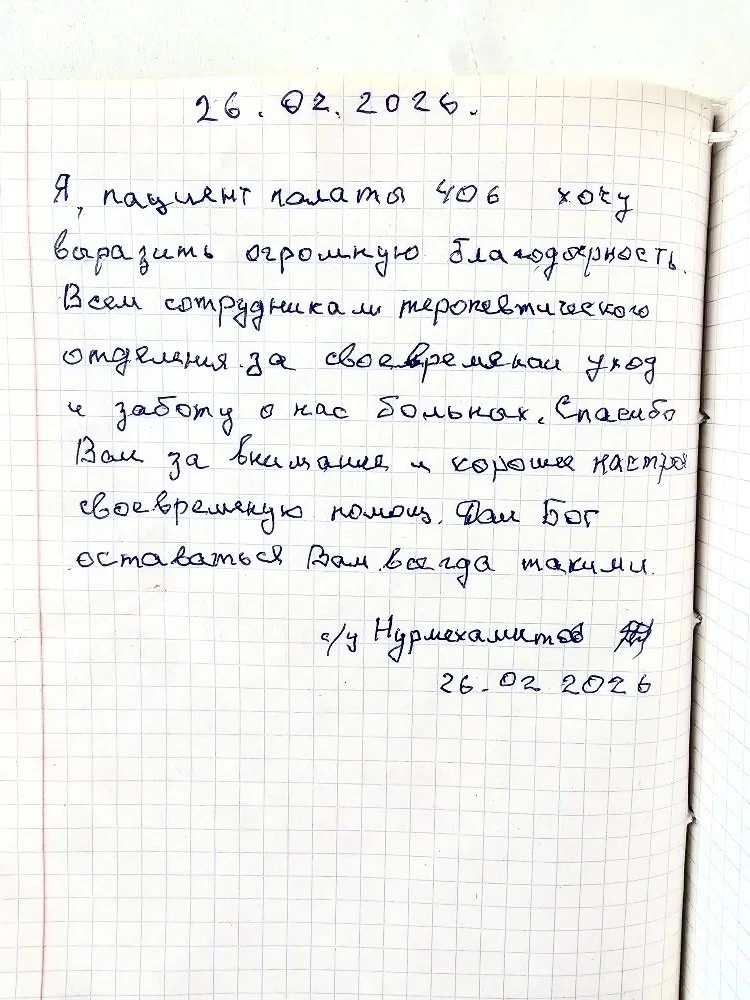 26.02.2026.
Я, пациент палаты 406 хочу
выразить огромную благодарность.
Всем сотрудникам теропевтического
отделения за своевременай уход
и заботу о нас больных. Спасибо
Вам за внимание и хорошее настрое
своевременую помощ. Дай Бог
оставаться Вам всегда такими.
с/у Нурмехамитов
26.02 2026